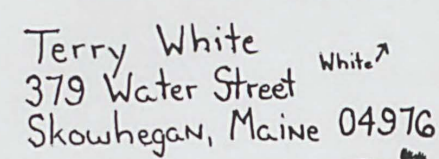 Terry White
White↗
379 Water Street
Skowhegan, Maine 04976